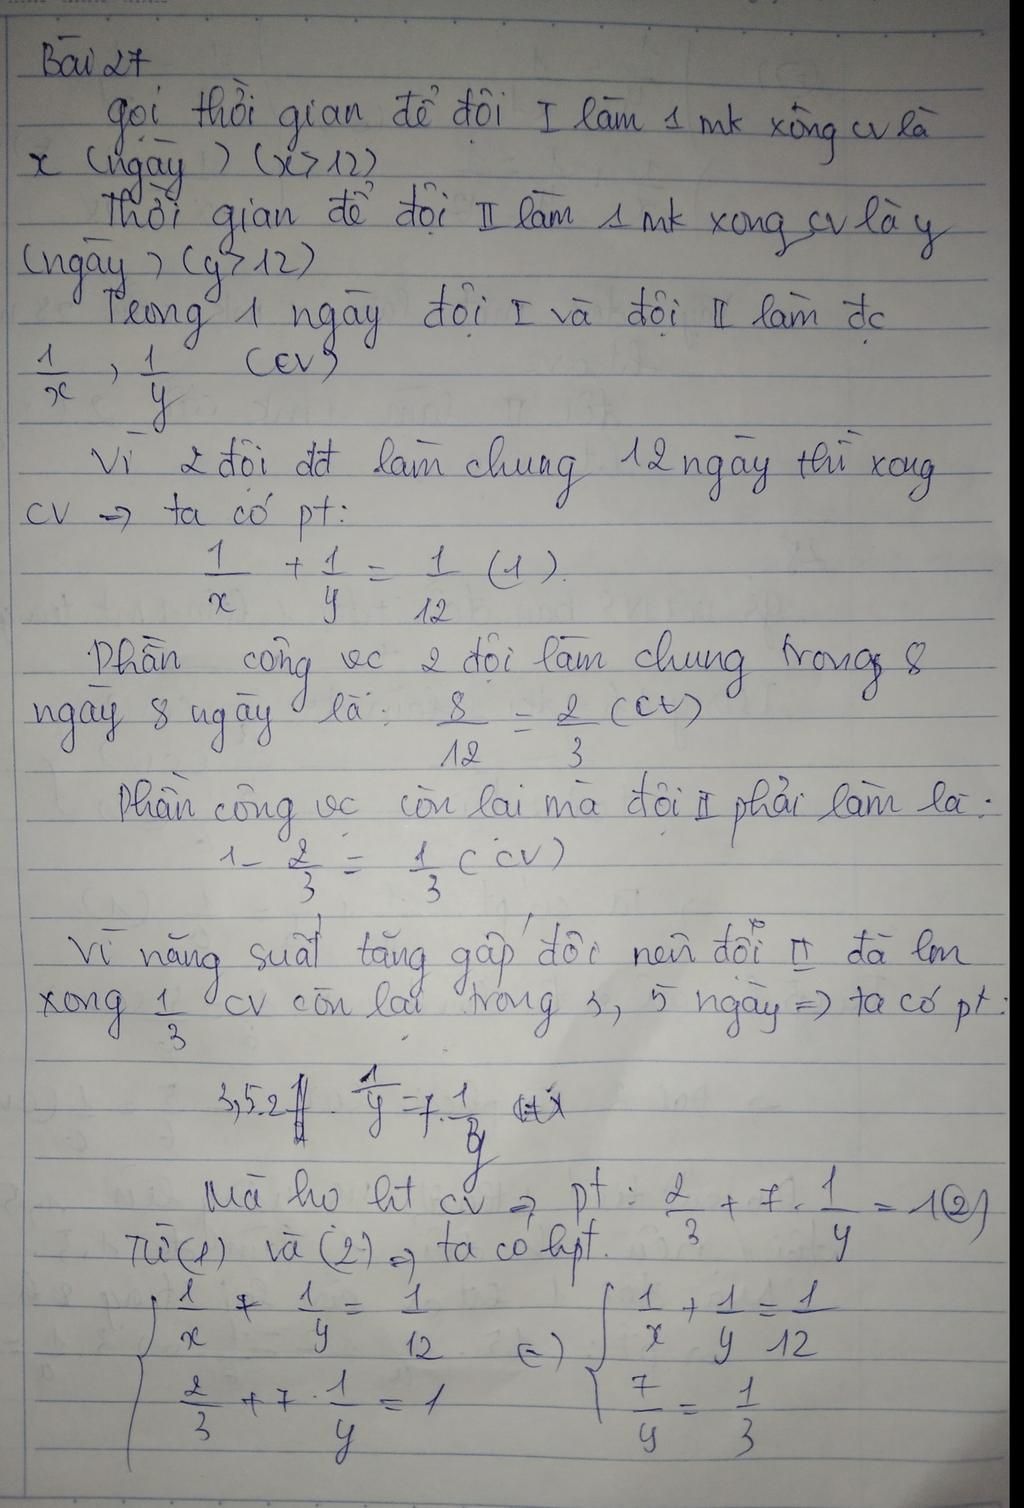 Bài 27
gọi thời gian để đội I làm 1 mk xong cv là
x (ngày) (x > 12)
Thời gian để đội II làm 1 mk xong cv là y
(ngày) (y > 12)
Trong 1 ngày đội I và đội II làm đc
1/x , 1/y (cv)
Vì 2 đội làm chung 12 ngày thì xong
cv => ta có pt:
1/x + 1/y = 1/12 (1).
Phần công vc 2 đội làm chung trong 8
ngày 8 ngày là: 8/12 = 2/3 (cv)
Phần công vc còn lại mà đội II phải làm là:
1 - 2/3 = 1/3 (cv)
Vì năng suất tăng gấp đôi nên đội II đã lm
xong 1/3 cv còn lại trong 3,5 ngày => ta có pt:
3,5.2 . 1/y = 7. 1/y
Mà ht cv => pt: 2/3 + 7. 1/y = 1 (2)
Từ (1) và (2) => ta có hpt.
{ 1/x + 1/y = 1/12 <=> { 1/x + 1/y = 1/12
2/3 + 7. 1/y = 1 7/y = 1/3